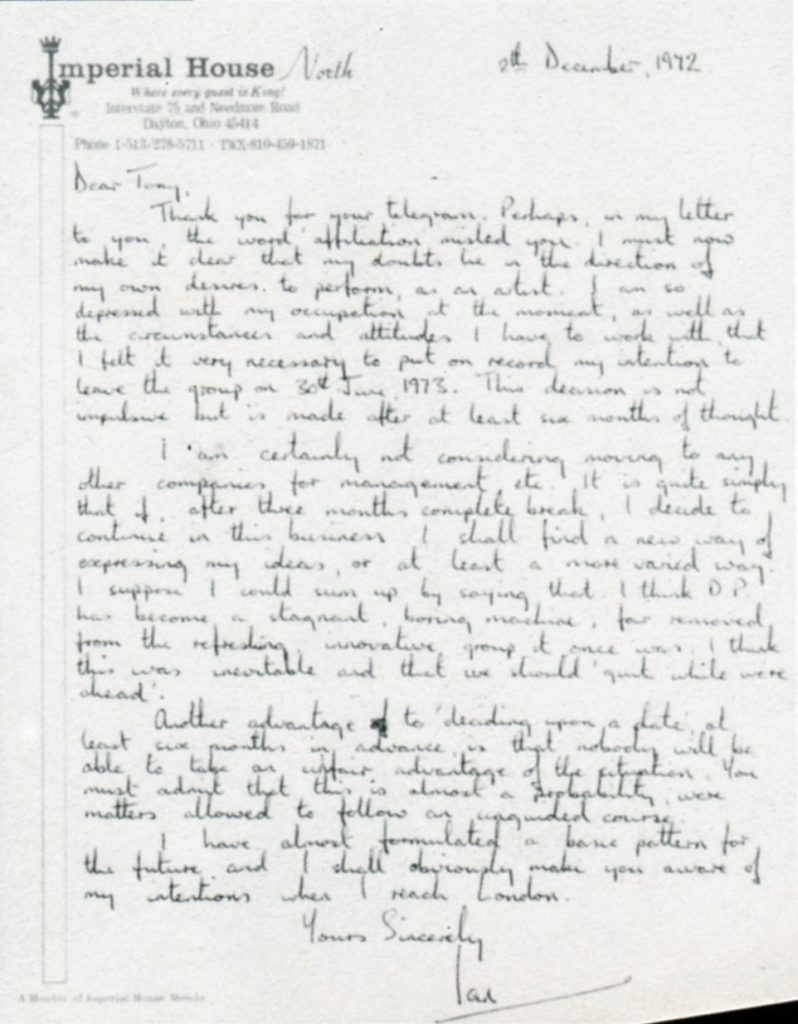 Imperial House North
th December, 1972
Where every guest is King!
Interstate 75 and Needmore Road
Dayton, Ohio 45414
Phone 1-513/278-5711 · TWX-810-459-1871
Dear Tony,
Thank you for your telegram. Perhaps, in my letter
to you, the word 'affiliation' misled you. I must now
make it clear that my doubts lie in the direction of
my own desires to perform, as an artist. I am so
depressed with my occupation at the moment, as well as
the circumstances and attitudes I have to work with, that
I felt it very necessary to put on record my intention to
leave the group on 30th June, 1973. This decision is not
impulsive but is made after at least six months of thought.
I am certainly not considering moving to any
other companies for management, etc. It is quite simply
that if, after three months complete break, I decide to
continue in this business I shall find a new way of
expressing my ideas, or at least a more varied way.
I suppose I could sum up by saying that I think D.P.
has become a stagnant, boring machine, far removed
from the refreshing, innovative group it once was. I think
this was inevitable and that we should 'quit while were
ahead'.
Another advantage to deciding upon a date, at
least six months in advance, is that nobody will be
able to take an unfair advantage of the situation. You
must admit that this is almost a probability, were
matters allowed to follow an unguided course.
I have almost formulated a basic pattern for
the future, and I shall obviously make you aware of
my intentions when I reach London.
Yours Sincerely
Ian
A Member of Imperial House Motels